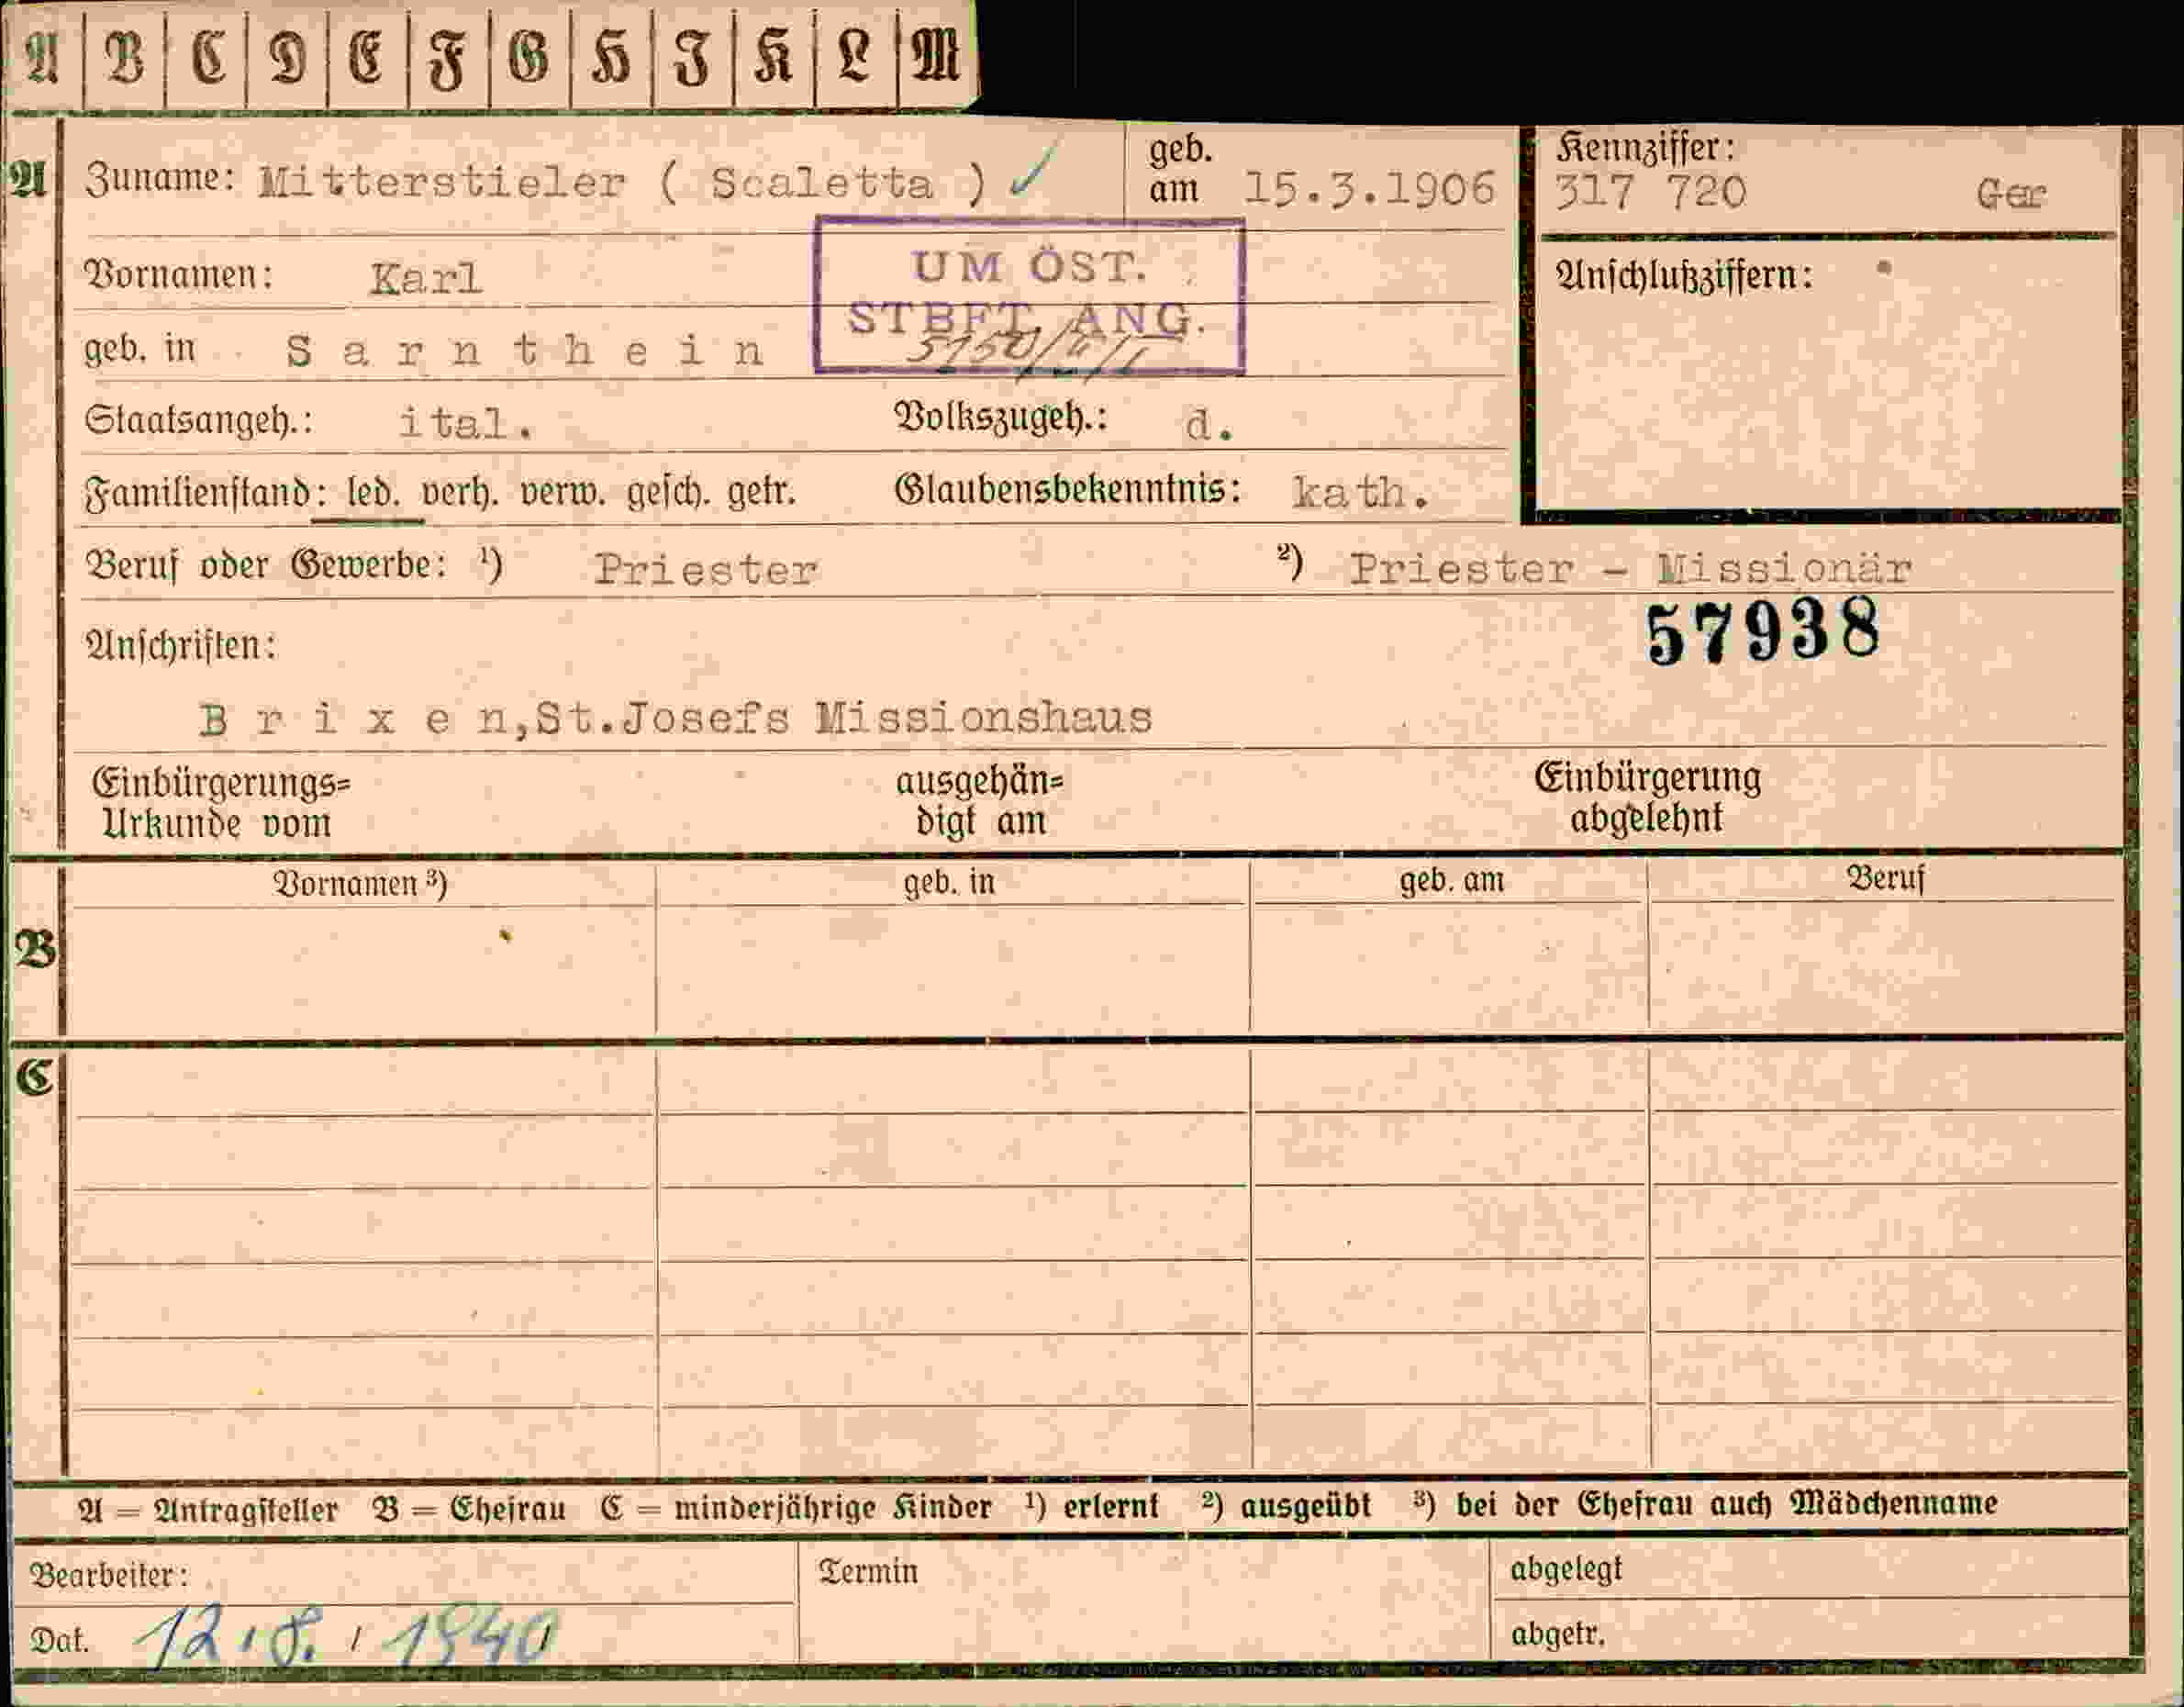 A B C D E F G H I K L M
A Zuname: Mitterstieler ( Scaletta ) ✓ geb. am 15.3.1906
Kennziffer:
317 720 Ger
UM ÖST.
STBFT. ANG.
Vornamen: Karl
Anschlußziffern:
geb. in Sarnthein
Staatsangeh.: ital. Volkszugeh.: d.
Familienstand: led. verh. verw. gesch. getr. Glaubensbekenntnis: kath.
Beruf oder Gewerbe: ¹) Priester ²) Priester - Missionär
57938
Anschriften:
Brixen,St.Josefs Missionshaus
Einbürgerungs= ausgehän= Einbürgerung
Urkunde vom digt am abgelehnt
Vornamen ³) geb. in geb. am Beruf
B
C
A = Antragsteller B = Ehefrau C = minderjährige Kinder ¹) erlernt ²) ausgeübt ³) bei der Ehefrau auch Mädchenname
Bearbeiter: Termin abgelegt
Dat. 12.8.1940 abgetr.